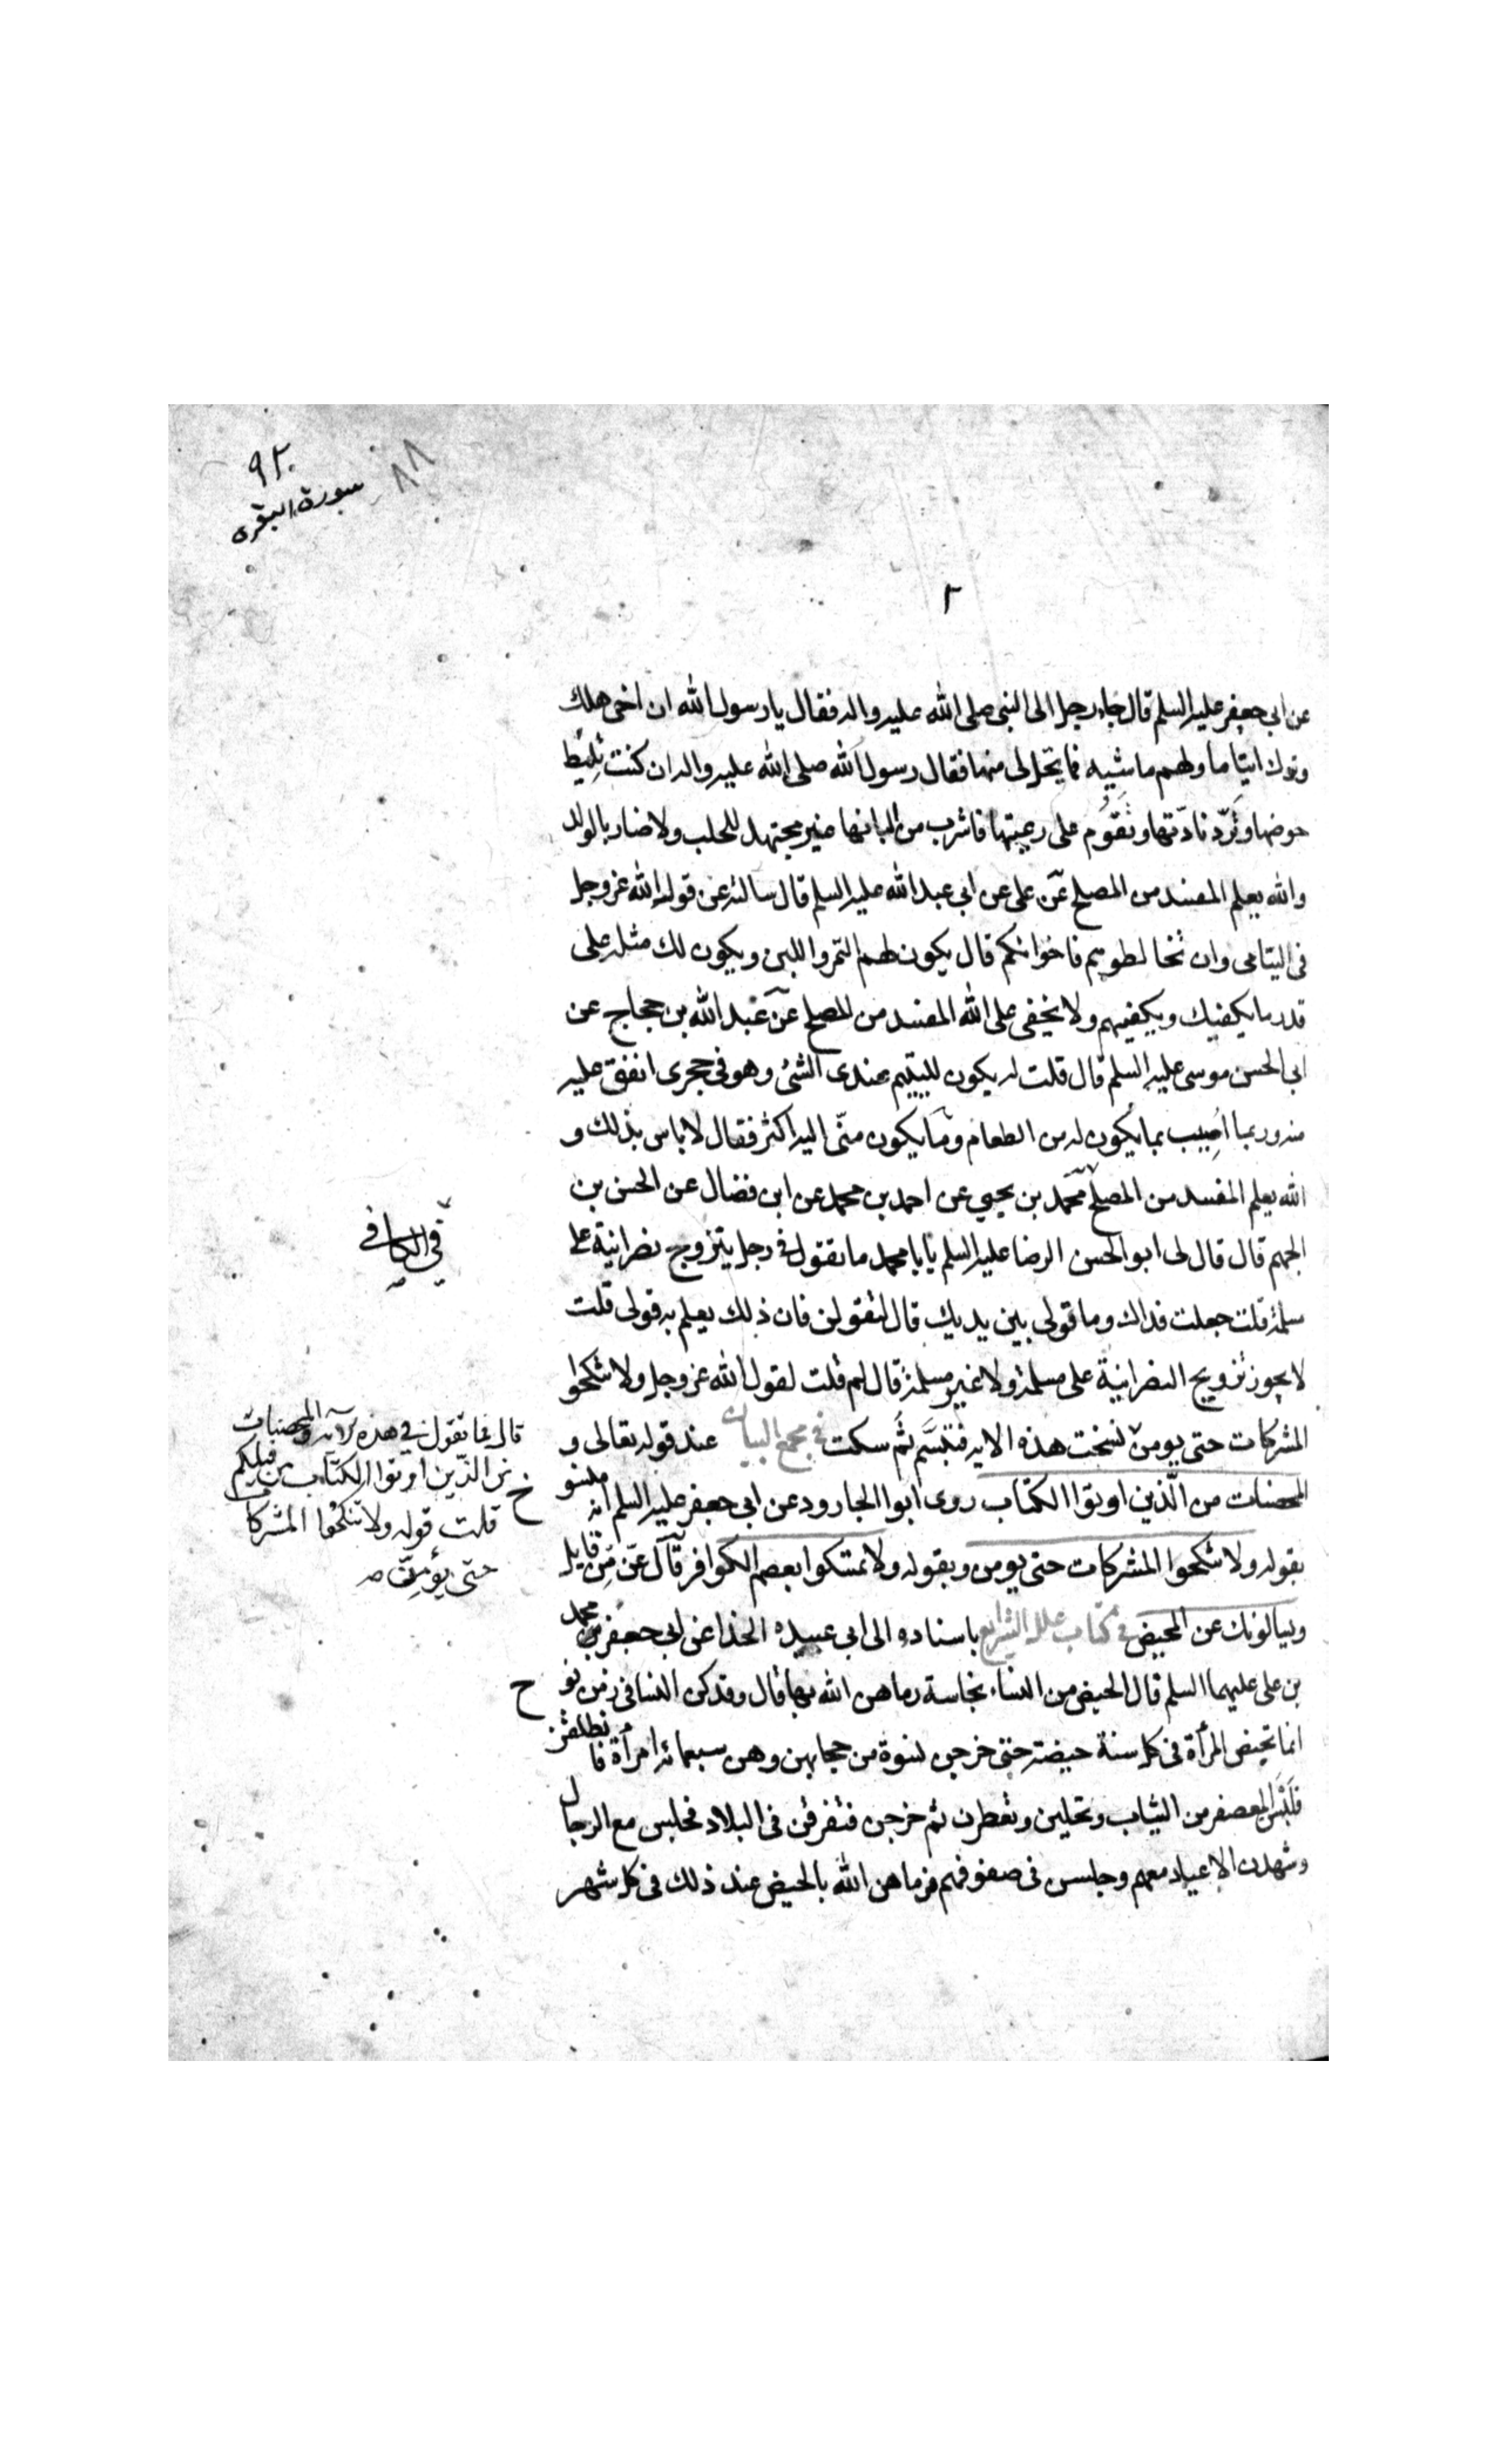 ٩٢
٨٨
سورة البقرى
٢
عن ابى جعفر عليه السلم قال جاء رجل الى النبى صلى الله عليه واله فقال يا رسول الله ان اخى هلك
وترك ايتاما ولهم ماشيه فما يحل لى منها فقال رسول الله صلى الله عليه واله ان كنت تليط
حوضها وتردّ نادّتها وتقوم على رعيتها فاشرب من البانها غير مجتهد للحلب ولا ضار بالولد
والله يعلم المفسد من المصلح عن على عن ابى عبد الله عليه السلم قال سالته عن قول الله عز وجل
فى اليتامى وان تخالطوهم فاخوانكم قال يكون لهم التمر واللبن ويكون لك مثله على
قدر ما يكفيك ويكفيهم ولا يخفى على الله المفسد من المصلح عن عبد الله بن حجاج عن
ابى الحسن موسى عليه السلم قال قلت له يكون لليتيم عندى الشئ وهو فى حجرى انفق عليه
منه وربما اصيب بما يكون له من الطعام وما يكون منّى اليه اكثر فقال لا باس بذلك و
الله يعلم المفسد من المصلح محمد بن يحيى عن احمد بن محمد عن ابن فضال عن الحسن بن
فى الكافى
الجهم قال قال لى ابو الحسن الرضا عليه السلم يا با محمد ما تقول فى رجل يتزوج نصرانية على
مسلمة قلت جعلت فداك وما قولى بين يديك قال لتقولن فان ذلك يعلم به قولى قلت
لا يجوز تزويج النصرانية على مسلمة ولا غير مسلمة قال لم قلت لقول الله عز وجل ولا تنكحوا
المشركات حتى يومن نسخت هذه الايه فتبسّم ثم سكت فى مجمع البيان عند قوله تعالى و
قال فما تقول فى هذه الآية والمحصنات
من الذين اوتوا الكتاب من قبلكم
قلت قوله ولا تنكحوا المشركات
حتى يؤمنّ صح
المحصنات من الّذين اوتوا الكتاب روى ابوا الجارود عن ابى جعفر عليه السلم انه منسوخ
بقوله ولا تنكحوا المشركات حتى يومن وبقوله ولا تمسكوا بعصم الكوافر قال عزّ من قايل
ويسالونك عن المحيض فى كتاب علل الشرايع باسناده الى ابى عبيده الحذا عن ابى جعفر محمد
بن على عليهما السلم قال الحيض من النساء نجاسة رماهن الله بها قال وقد كن النسا فى زمن نوح
انما تحيض المرأة فى كل سنة حيضة حتى خرجن نسوة من حجابهن وهن سبعمائه امرأة فانطلقن
فلبسن المعصفر من الثياب وتحلين وتعطرن ثم خرجن فتفرقن فى البلاد فجلسن مع الرجال
وشهدن الاعياد معهم وجلسن فى صفوفهم فرماهن الله بالحيض عند ذلك فى كل شهر